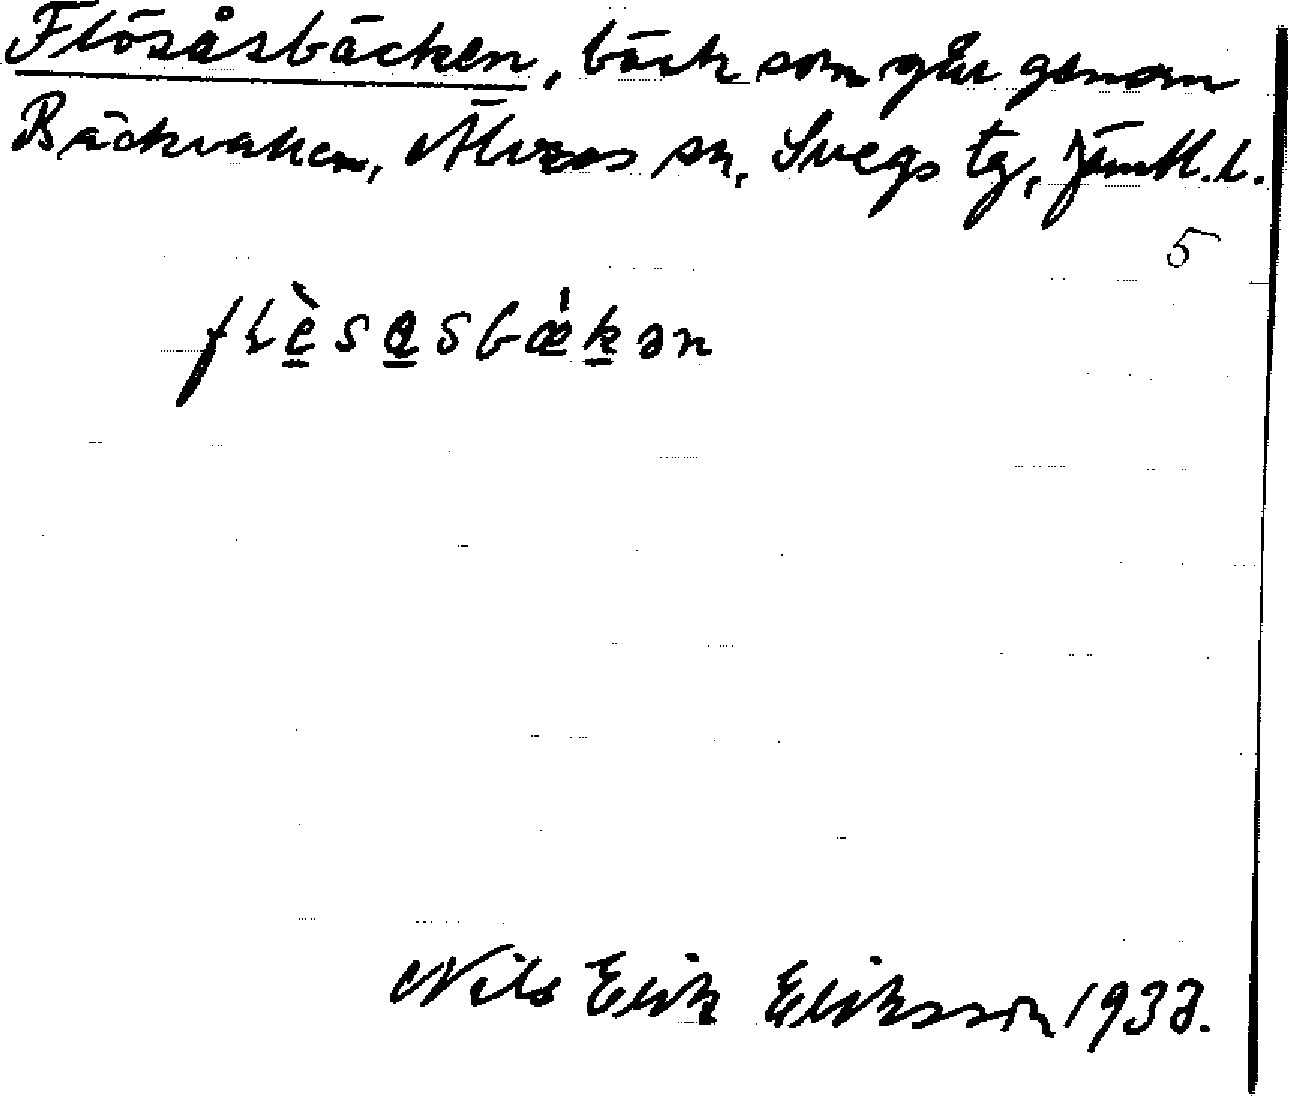 Flösåsbäcken, bäck som går genom
Bäckvallen, Älvros sn, Svegs tg, Jämtl. l.
5
flèsasbæ̀kən
Nils Erik Eriksson 193